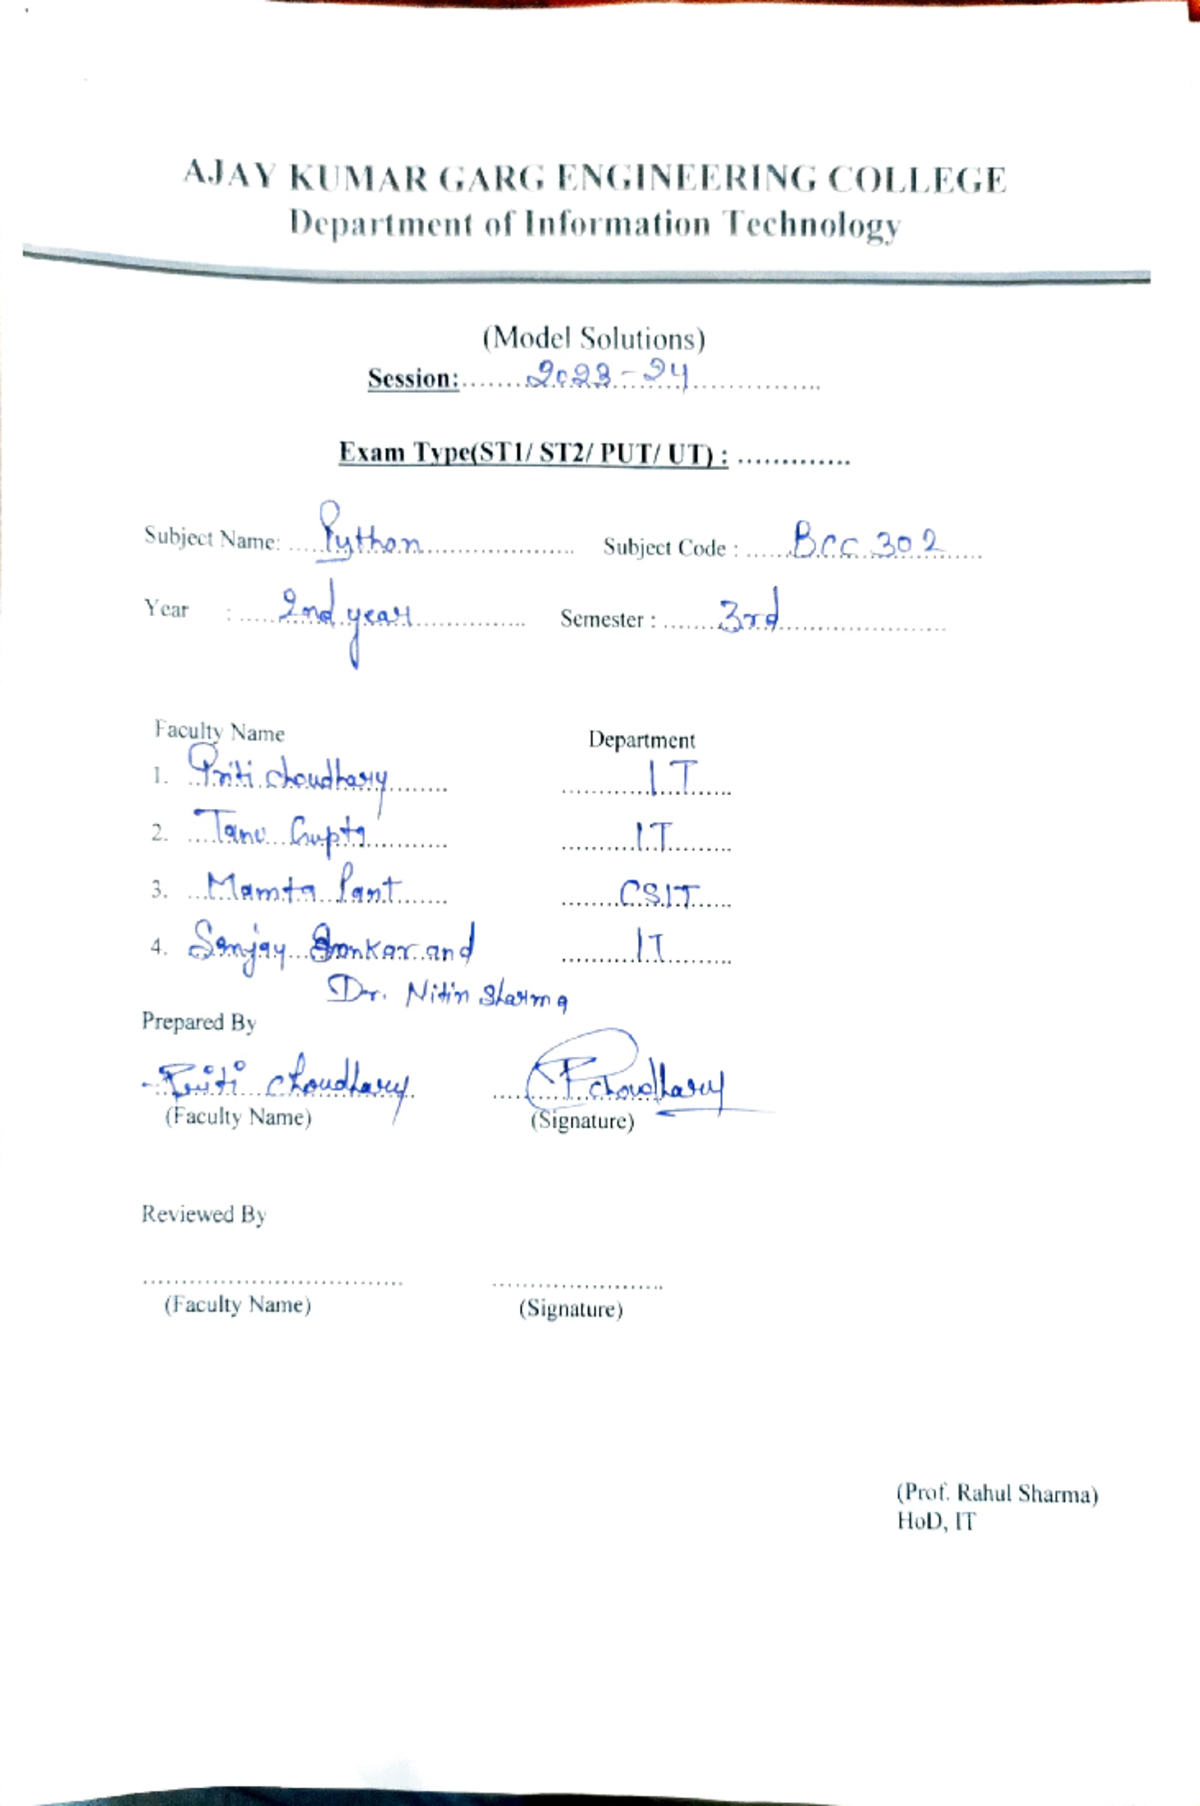 AJAY KUMAR GARG ENGINEERING COLLEGE
Department of Information Technology
(Model Solutions)
Session:........2023-24..................
Exam Type(ST1/ ST2/ PUT/ UT) : .............
Subject Name: ....Python.................... Subject Code : .....BCC 302.....
Year : .....2nd year............... Semester : .......3rd......................
Faculty Name Department
1. Priti Choudhary........ ............IT.....
2. ....Tanu Gupta............ ...........IT.........
3. ...Mamta Pant....... ........CSIT.....
4. Sanjay Sonkar and ...........IT.........
Dr. Nitin Sharma
Prepared By
Priti Choudhary PChoudhary
(Faculty Name) (Signature)
Reviewed By
................................. ........................
(Faculty Name) (Signature)
(Prof. Rahul Sharma)
HoD, IT